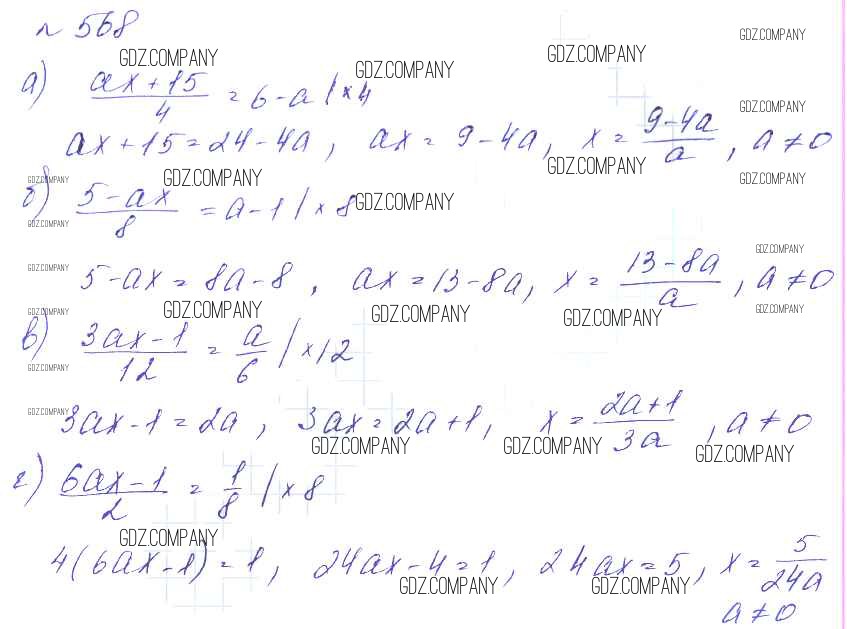 № 568
GDZ.COMPANY GDZ.COMPANY GDZ.COMPANY GDZ.COMPANY
а) (ax + 15)/4 = 6 - a | × 4
GDZ.COMPANY
ax + 15 = 24 - 4a, ax = 9 - 4a, x = (9 - 4a)/a, a ≠ 0
GDZ.COMPANY GDZ.COMPANY GDZ.COMPANY GDZ.COMPANY
б) (5 - ax)/8 = a - 1 | × 8
GDZ.COMPANY GDZ.COMPANY
GDZ.COMPANY GDZ.COMPANY
5 - ax = 8a - 8, ax = 13 - 8a, x = (13 - 8a)/a, a ≠ 0
GDZ.COMPANY GDZ.COMPANY GDZ.COMPANY GDZ.COMPANY GDZ.COMPANY
в) (3ax - 1)/12 = a/6 | × 12
GDZ.COMPANY
GDZ.COMPANY
3ax - 1 = 2a, 3ax = 2a + 1, x = (2a + 1)/3a, a ≠ 0
GDZ.COMPANY GDZ.COMPANY GDZ.COMPANY
г) (6ax - 1)/2 = 1/8 | × 8
GDZ.COMPANY
4(6ax - 1) = 1, 24ax - 4 = 1, 24ax = 5, x = 5/24a
GDZ.COMPANY GDZ.COMPANY
a ≠ 0